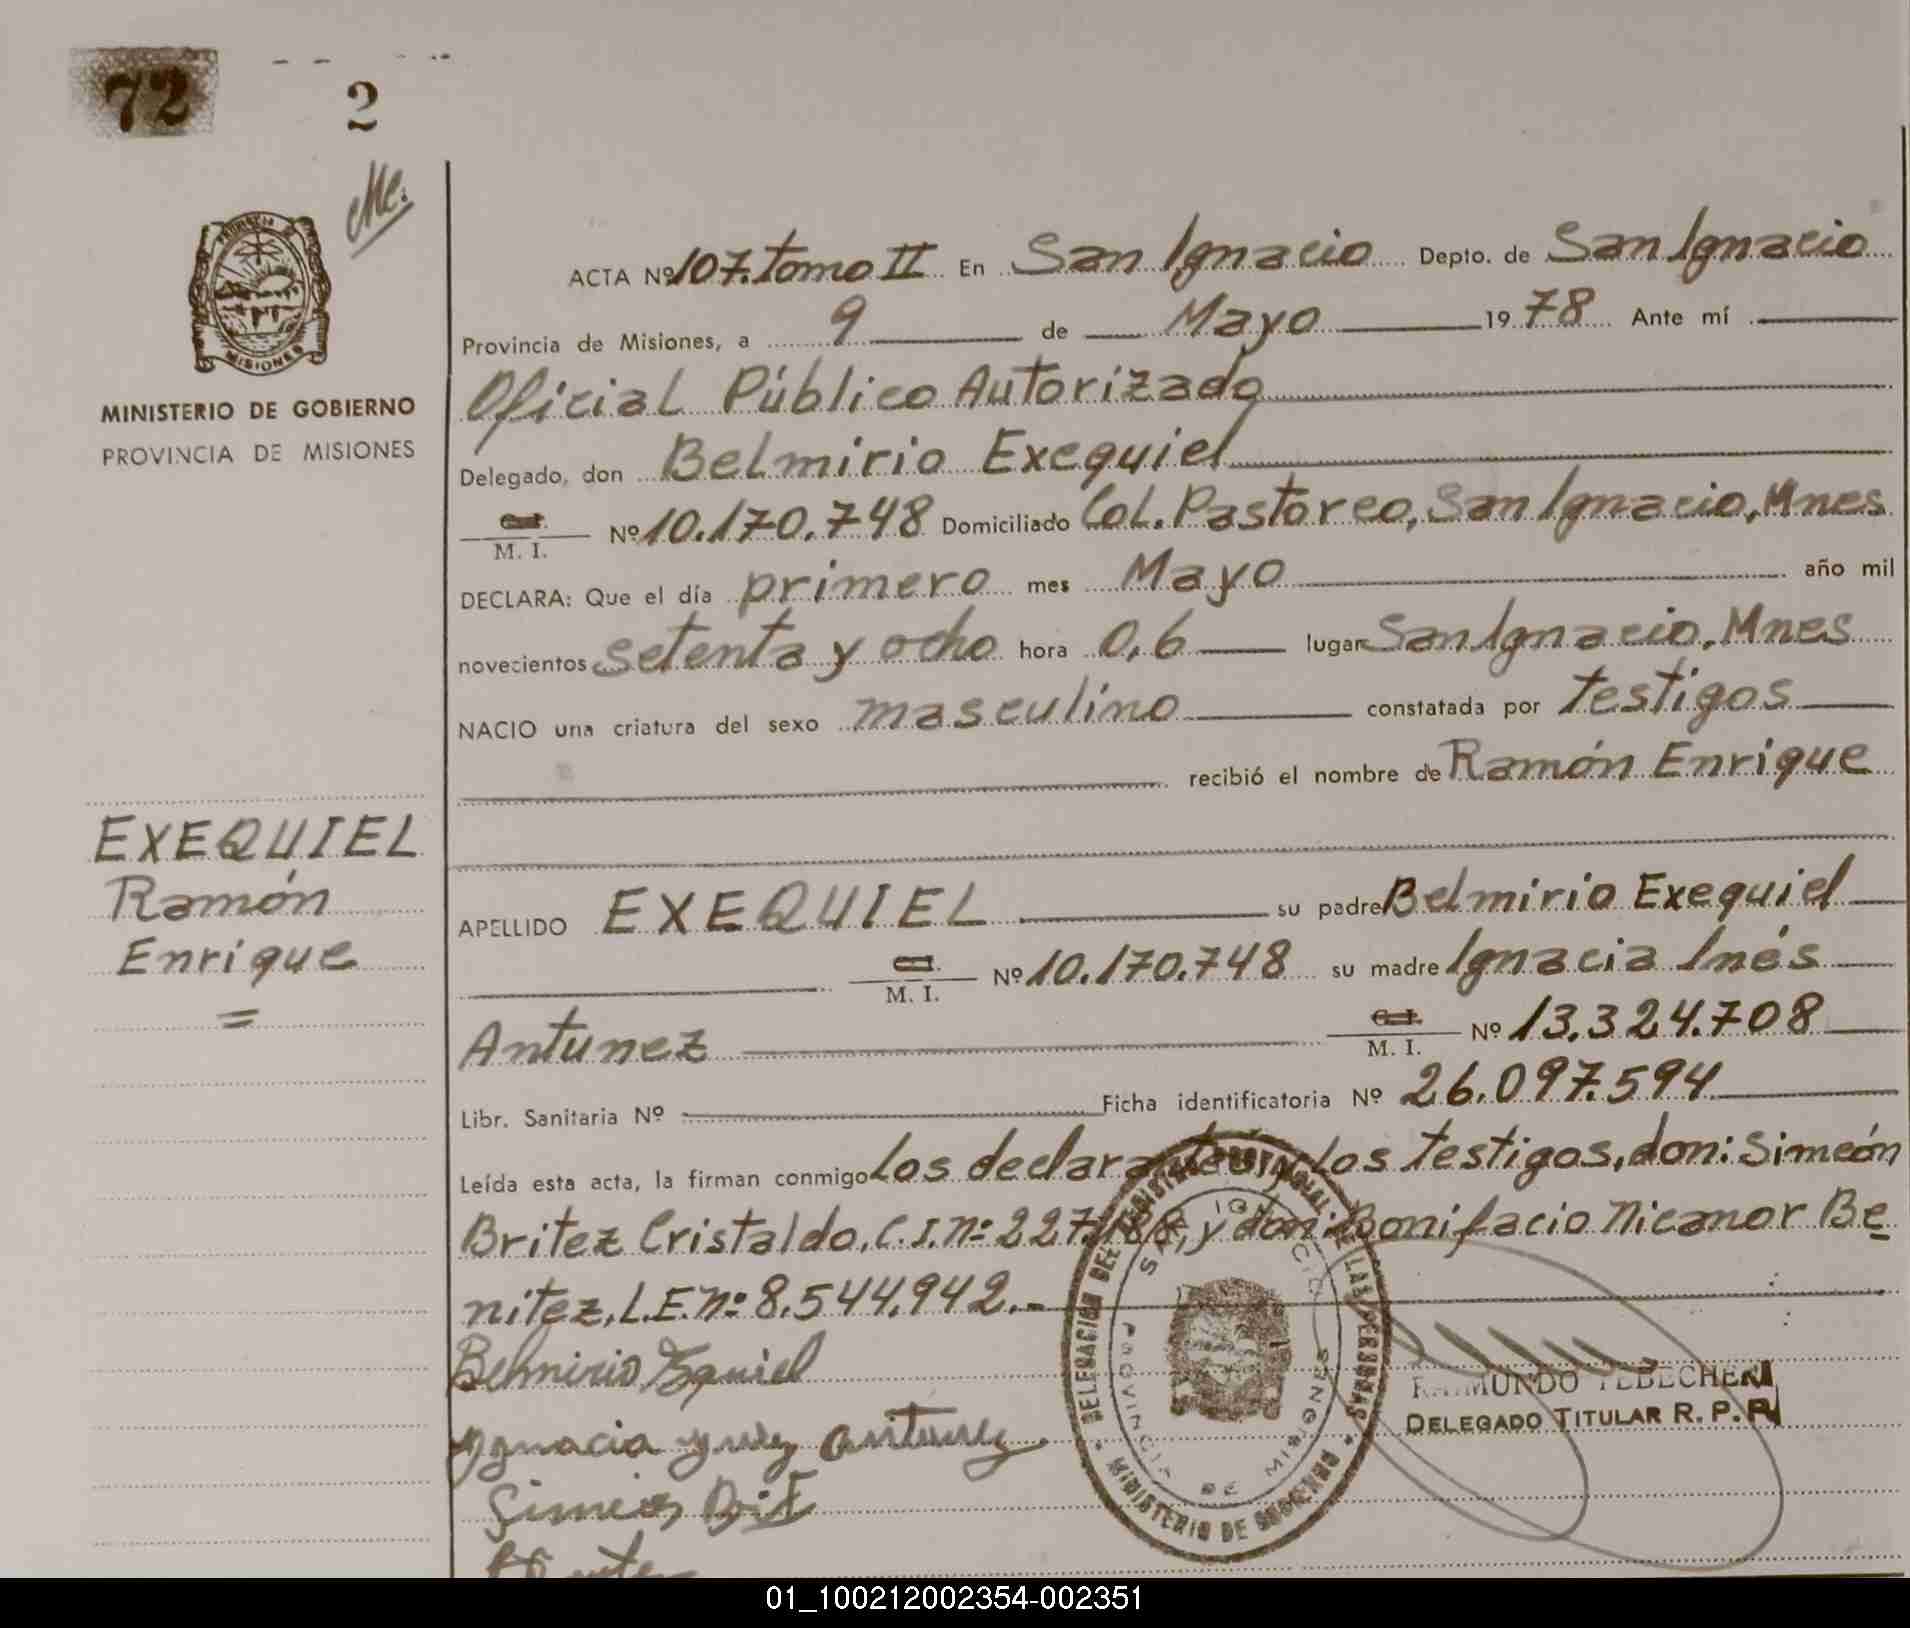 72 2
Me.
PROVINCIA DE
MISIONES
MINISTERIO DE GOBIERNO
PROVINCIA DE MISIONES
ACTA Nº 107. Tomo II En San Ignacio Depto. de San Ignacio
Provincia de Misiones, a 9 de Mayo 1978 Ante mí
Oficial Público Autorizado
Delegado, don Belmirio Exequiel
C.I.
M. I. Nº 10.170.748 Domiciliado Col. Pastoreo, San Ignacio, Mnes
DECLARA: Que el día primero mes Mayo año mil
novecientos setenta y ocho hora 0,6 lugar San Ignacio, Mnes
NACIO una criatura del sexo masculino constatada por testigos
recibió el nombre de Ramón Enrique
EXEQUIEL
Ramón
Enrique
=
APELLIDO EXEQUIEL su padre Belmirio Exequiel
C.I.
M. I. Nº 10.170.748 su madre Ignacia Inés
Antunez C.I.
M. I. Nº 13.324.708
Libr. Sanitaria Nº Ficha identificatoria Nº 26.097.594
Leída esta acta, la firman conmigo Los declarantes, y los testigos, don: Simeón
Britez Cristaldo, C.I. Nº 227.188, y don: Bonifacio Nicanor Be
nitez, L.E. Nº 8.544.942.-
Belmirio Exquiel
Ygnacia ynez antunez
Simeon Brit
DELEGACION DEL REGISTRO PROVINCIAL DE LAS PERSONAS
MINISTERIO DE GOBIERNO
SAN IGNACIO
PROVINCIA DE MISIONES
RAIMUNDO TEBECHERI
DELEGADO TITULAR R. P. P.
01_100212002354-002351